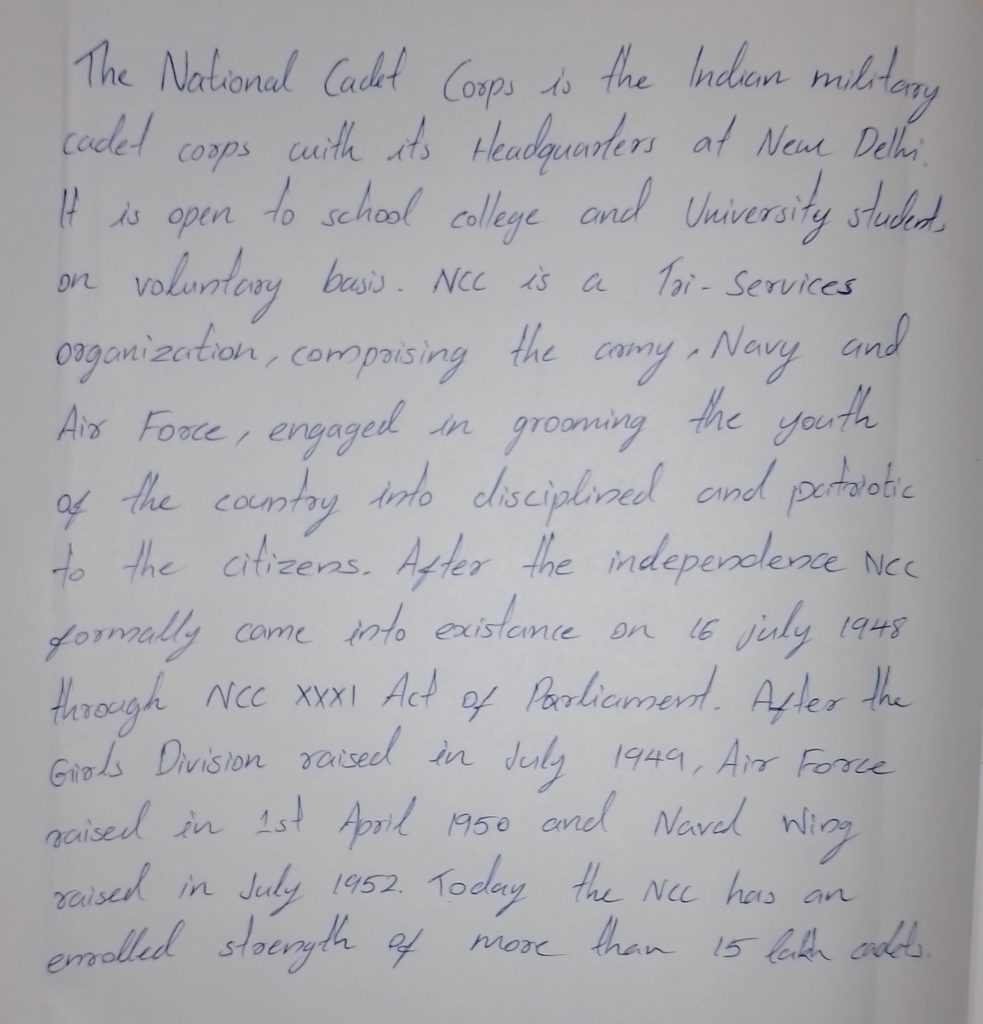 The National Cadet Corps is the Indian military
cadet corps with its Headquarters at New Delhi.
It is open to school college and University students
on voluntary basis. NCC is a Tri-Services
organization, comprising the army, Navy and
Air Force, engaged in grooming the youth
of the country into disciplined and patriotic
to the citizens. After the independence NCC
formally came into existance on 16 july 1948
through NCC XXXI Act of Parliament. After the
Girls Division raised in July 1949, Air Force
raised in 1st April 1950 and Naval Wing
raised in July 1952. Today the NCC has an
enrolled strength of more than 15 lakh cadets.